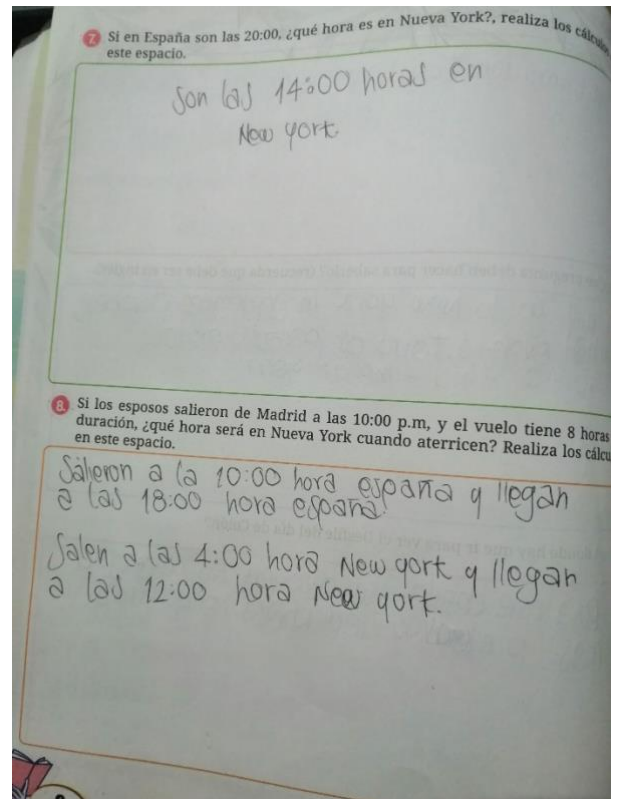 7. Si en España son las 20:00, ¿qué hora es en Nueva York?, realiza los
este espacio.
Son las 14:00 horas en
New york.
8. Si los esposos salieron de Madrid a las 10:00 p.m, y el vuelo tiene 8 horas
duración, ¿qué hora será en Nueva York cuando aterricen? Realiza los cálcu
en este espacio.
Salieron a la 10:00 hora españa y llegan
a las 18:00 hora españa.
Salen a las 4:00 hora New york y llegan
a las 12:00 hora New york.